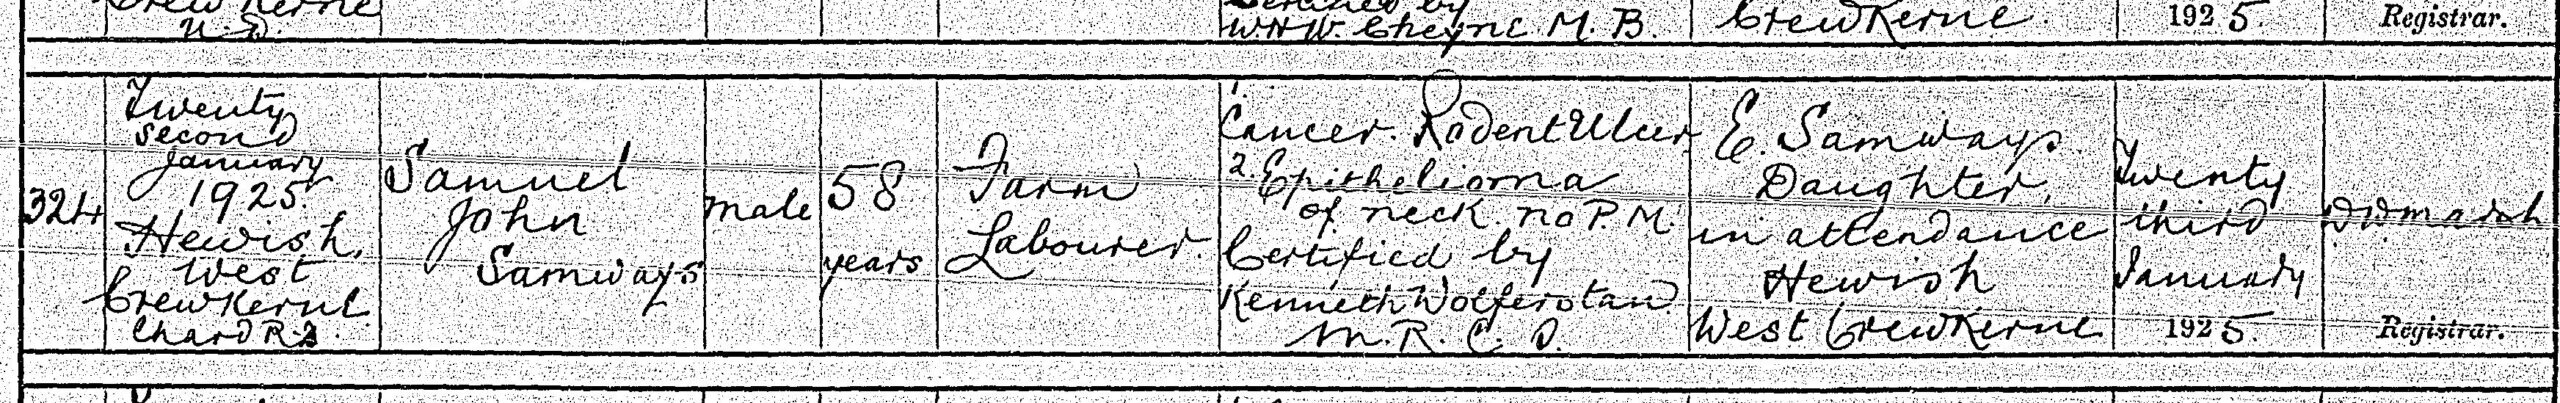 Crewkerne
U.D.
Certified by
W H W. Cheyne M. B.
Crewkerne.
1925.
Registrar.
324
Twenty
second
January
1925
Hewish,
West
Crewkerne
Chard R.D.
Samuel
John
Samways
male
58
years
Farm
Labourer.
1.
Cancer. Rodent Ulcer
2. Epithelioma
of neck. no P.M.
Certified by
Kenneth Wolferstan
M.R.C.S.
E. Samways
Daughter,
in attendance
Hewish
West Crewkerne
Twenty
third
January
1925.
Registrar.